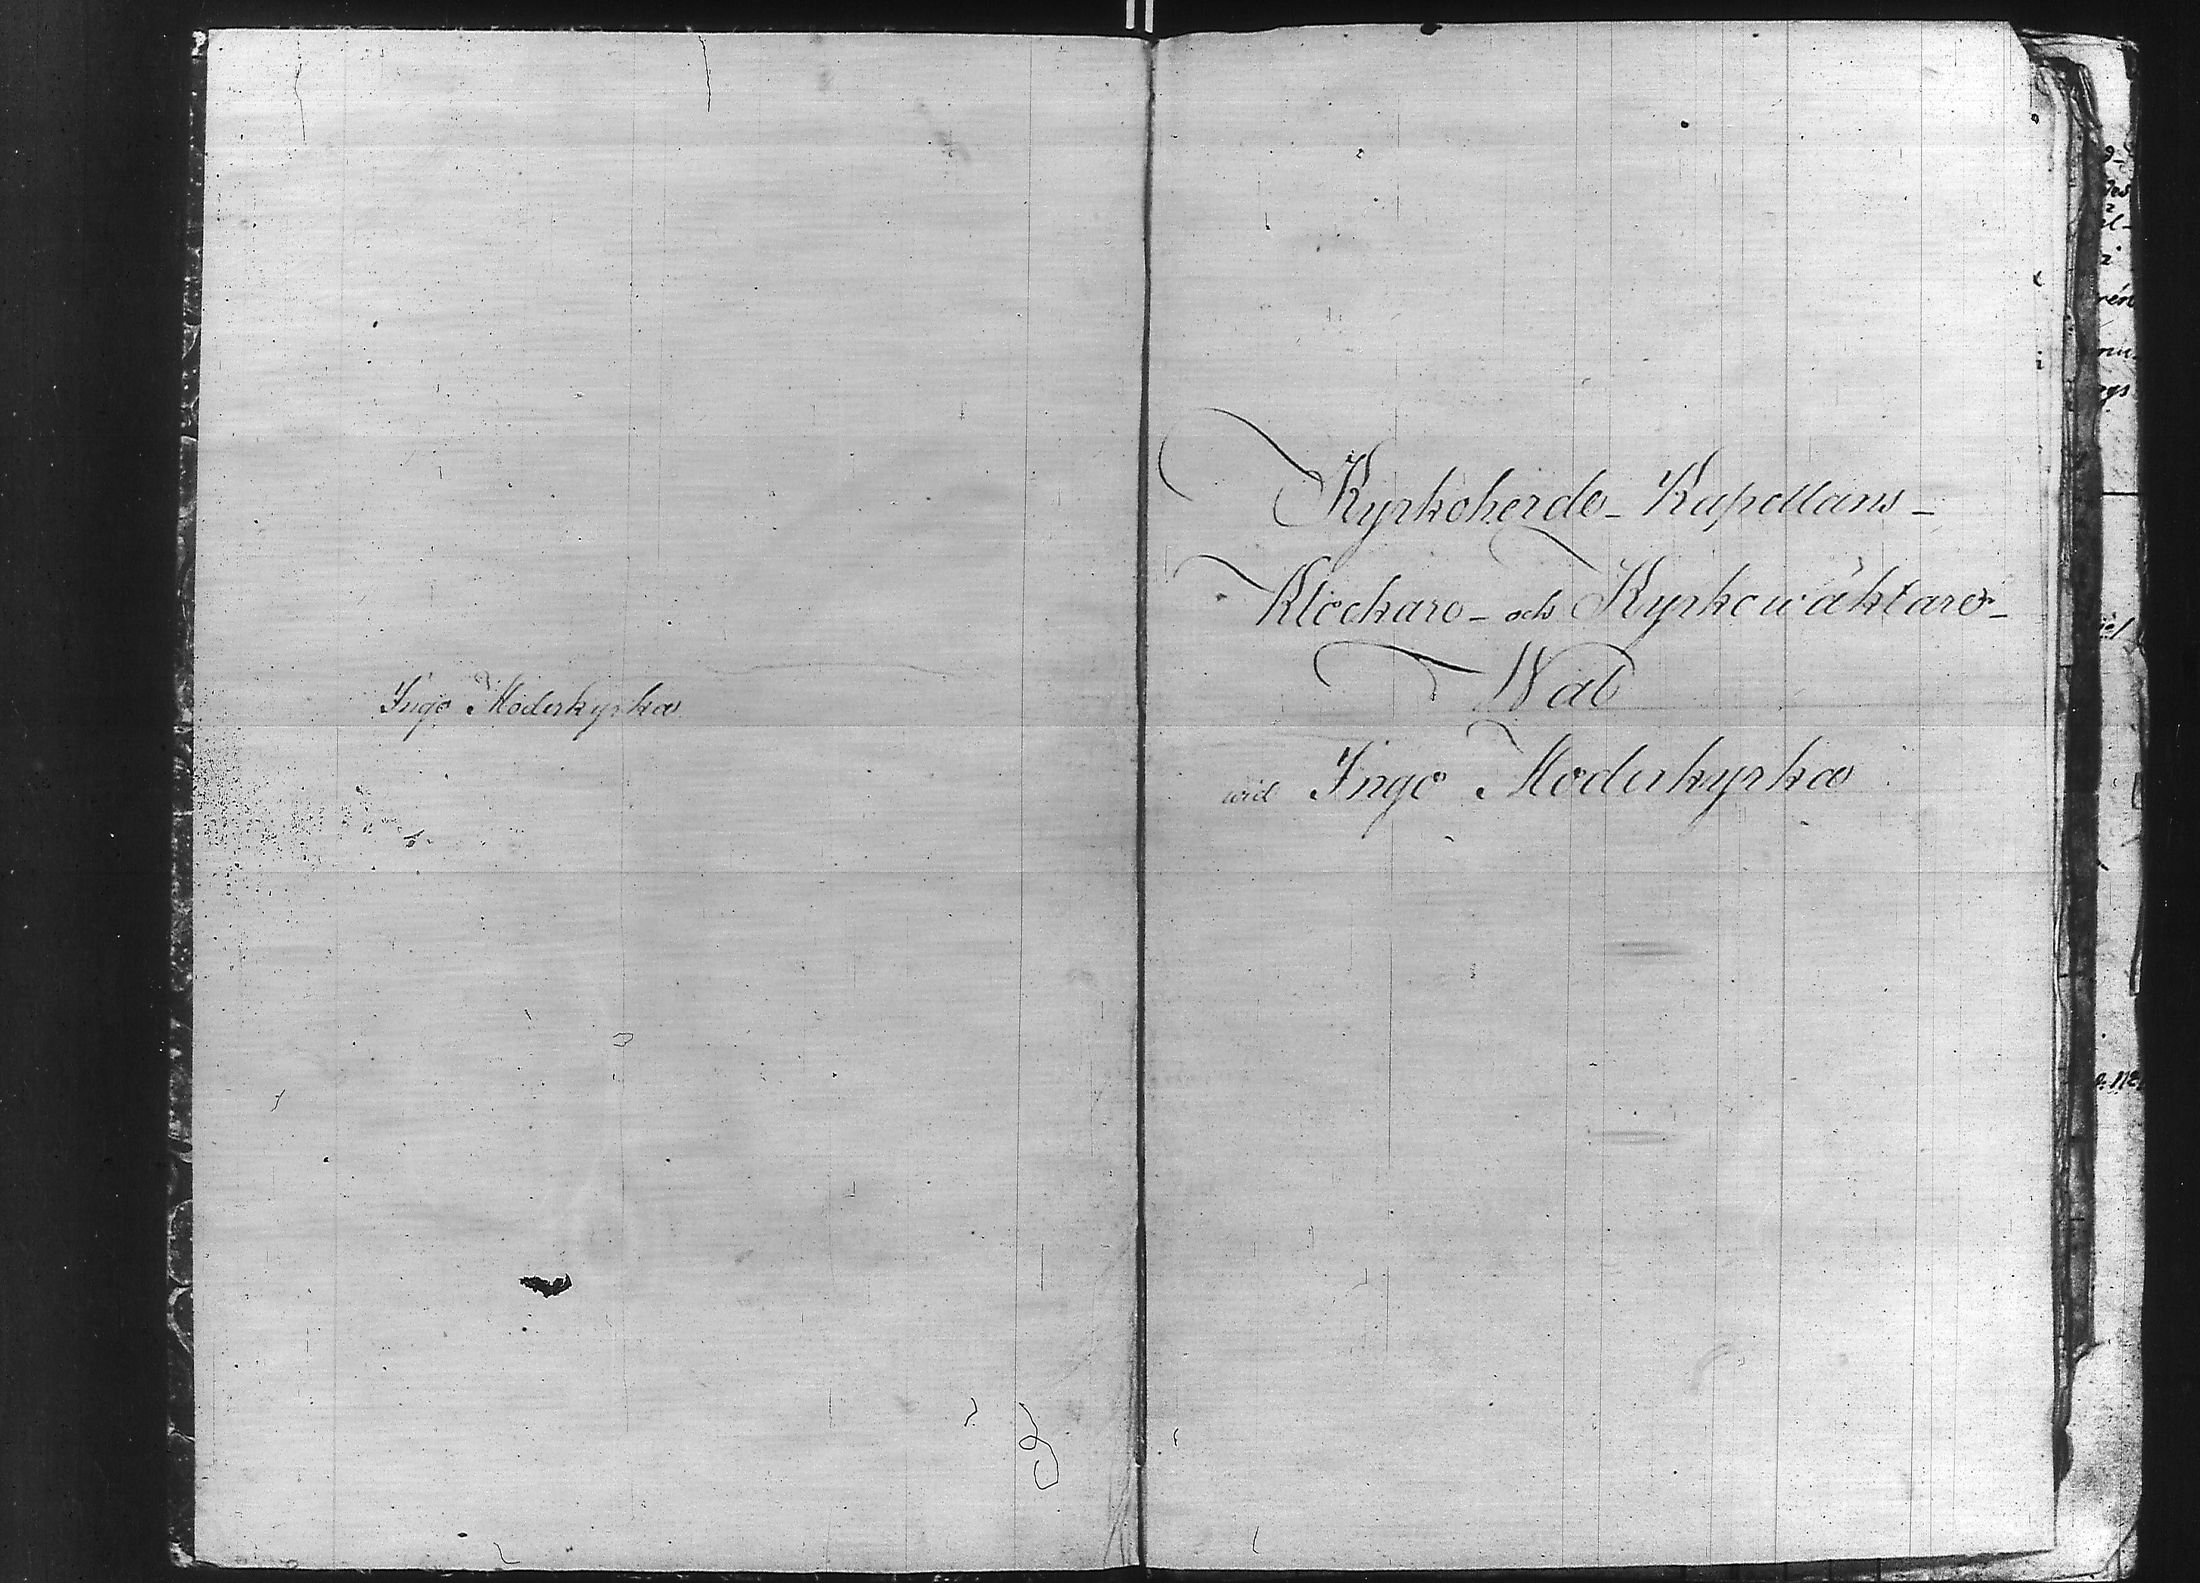 Ingå Moderkyrka
Kyrkoherde- Kapellans-
Klockare- och Kyrkowäktare-
Wal
wid Ingå Moderkyrka